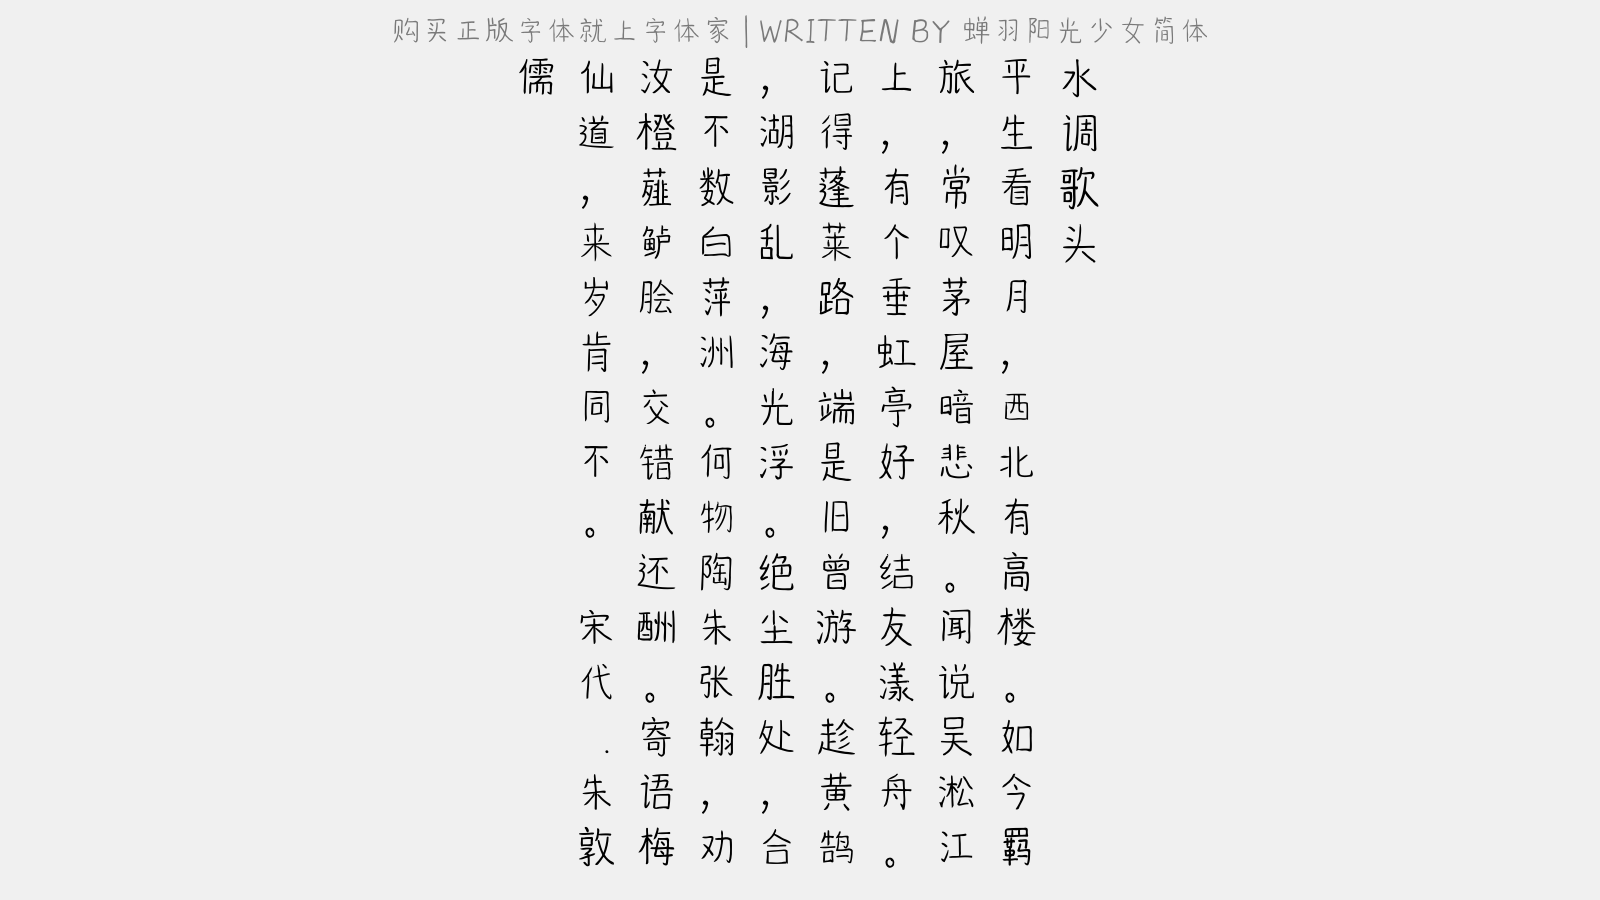 购买正版字体就上字体家|WRITTEN BY 蝉羽阳光少女简体
水调歌头
平生看明月，西北有高楼。如今羁
旅，常叹茅屋暗悲秋。闻说吴淞江
上，有个垂虹亭好，结友漾轻舟。
记得蓬莱路，端是旧曾游。趁黄鹄
，湖影乱，海光浮。绝尘胜处，合
是不数白萍洲。何物陶朱张翰，劝
汝橙薤鲈脍，交错献还酬。寄语梅
仙道，来岁肯同不。 宋代.朱敦
儒